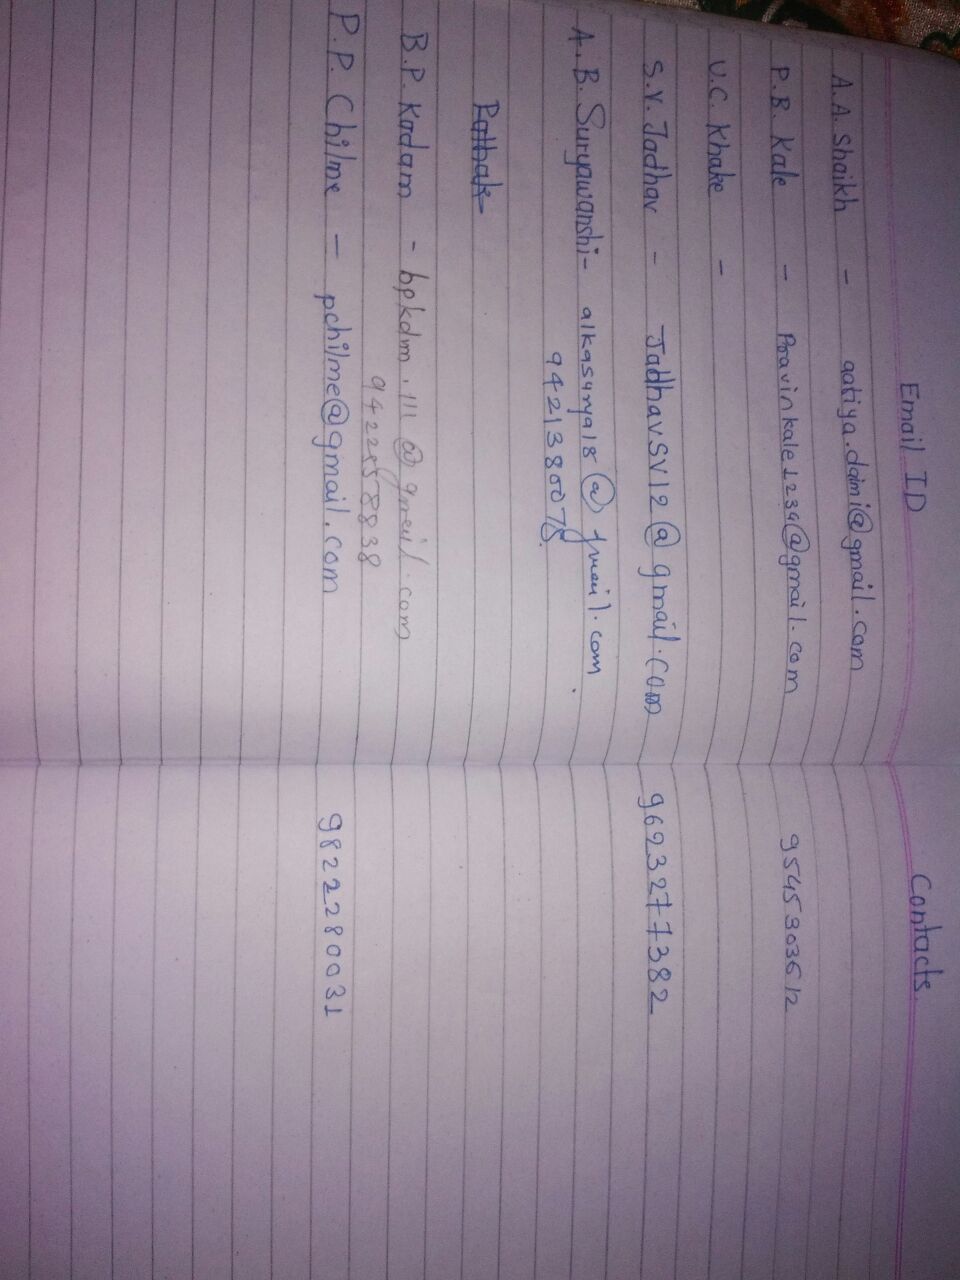 Email ID Contacts
A.A. Shaikh - aatiya.daimi@gmail.com
P.B. Kale - Pravinkale1234@gmail.com 9545303612
U.C. Khake -
S.V. Jadhav - JadhavSV12@gmail.com 9623277382
A.B. Suryawanshi - alkasurya18@gmail.com
9421380078
Pathak
B.P. Kadam - bpkdm.111@gmail.com
9422558838
P.P. Chilme - pchilme@gmail.com 9822280031